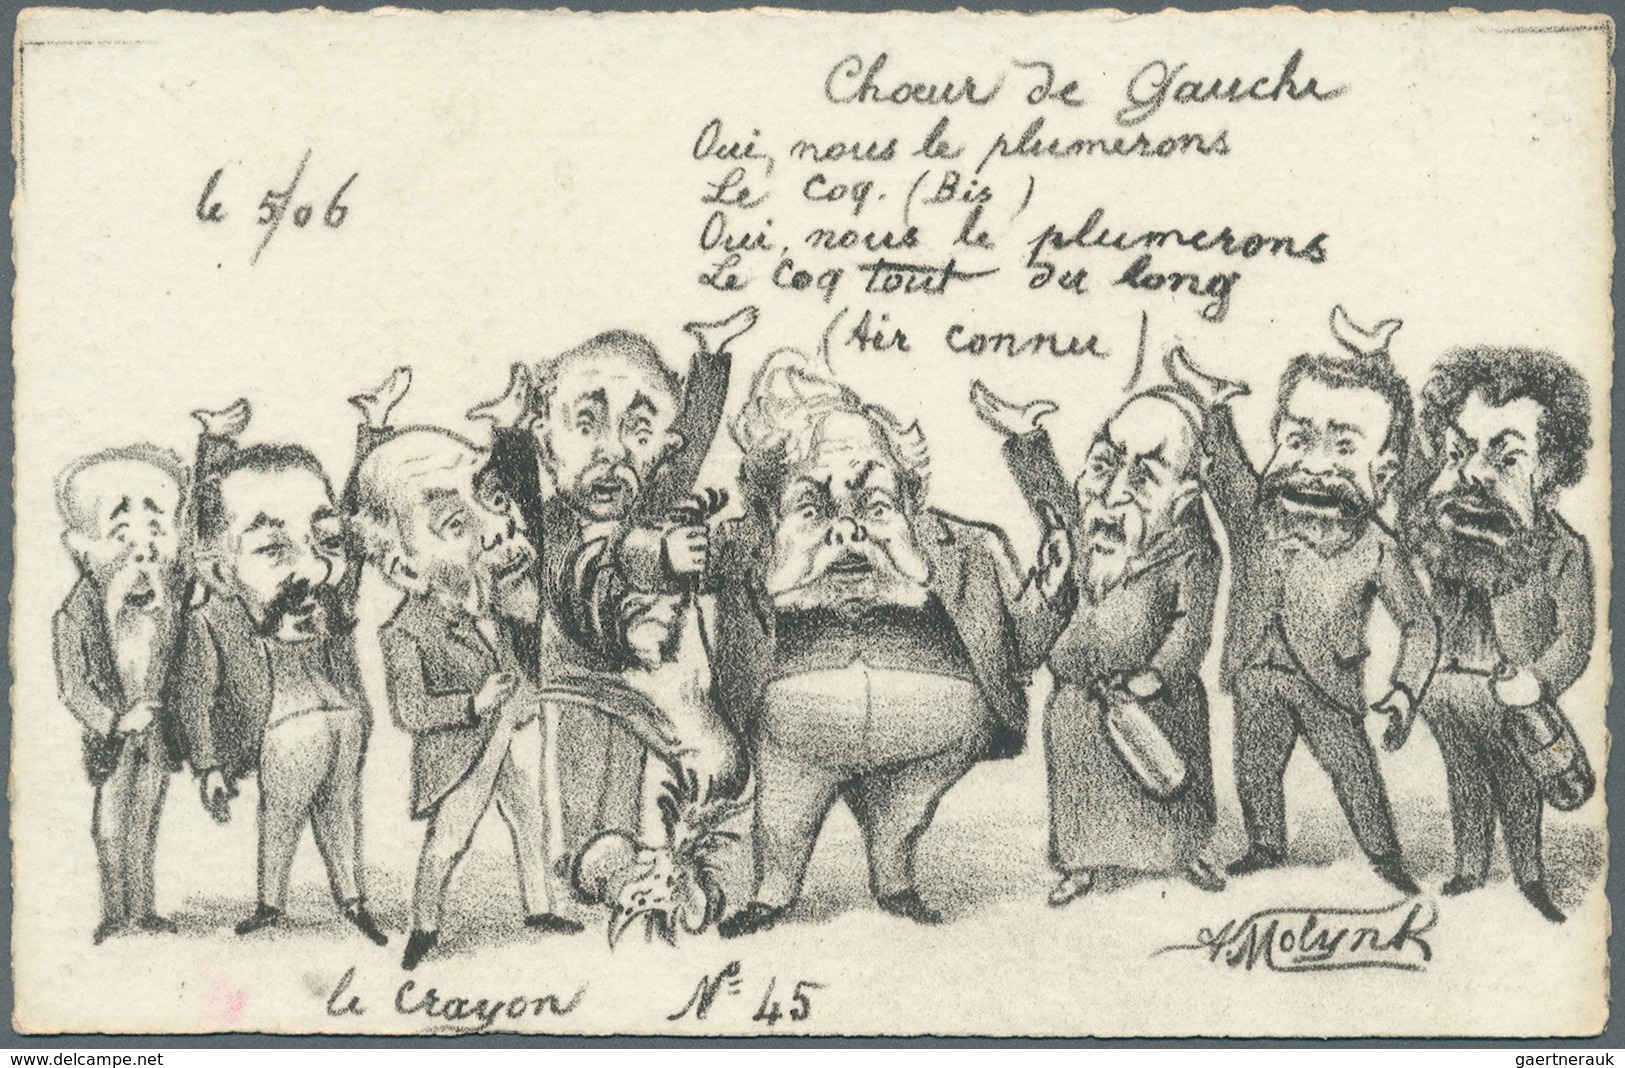 Chœur de Gauche
Oui, nous le plumerons
Le Coq. (Bis)
Oui, nous le plumerons
Le Coq tout du long
(Air connu)
le 5/06
A. Molynk
le Crayon N° 45
www.delcampe.net
gaertnerauk